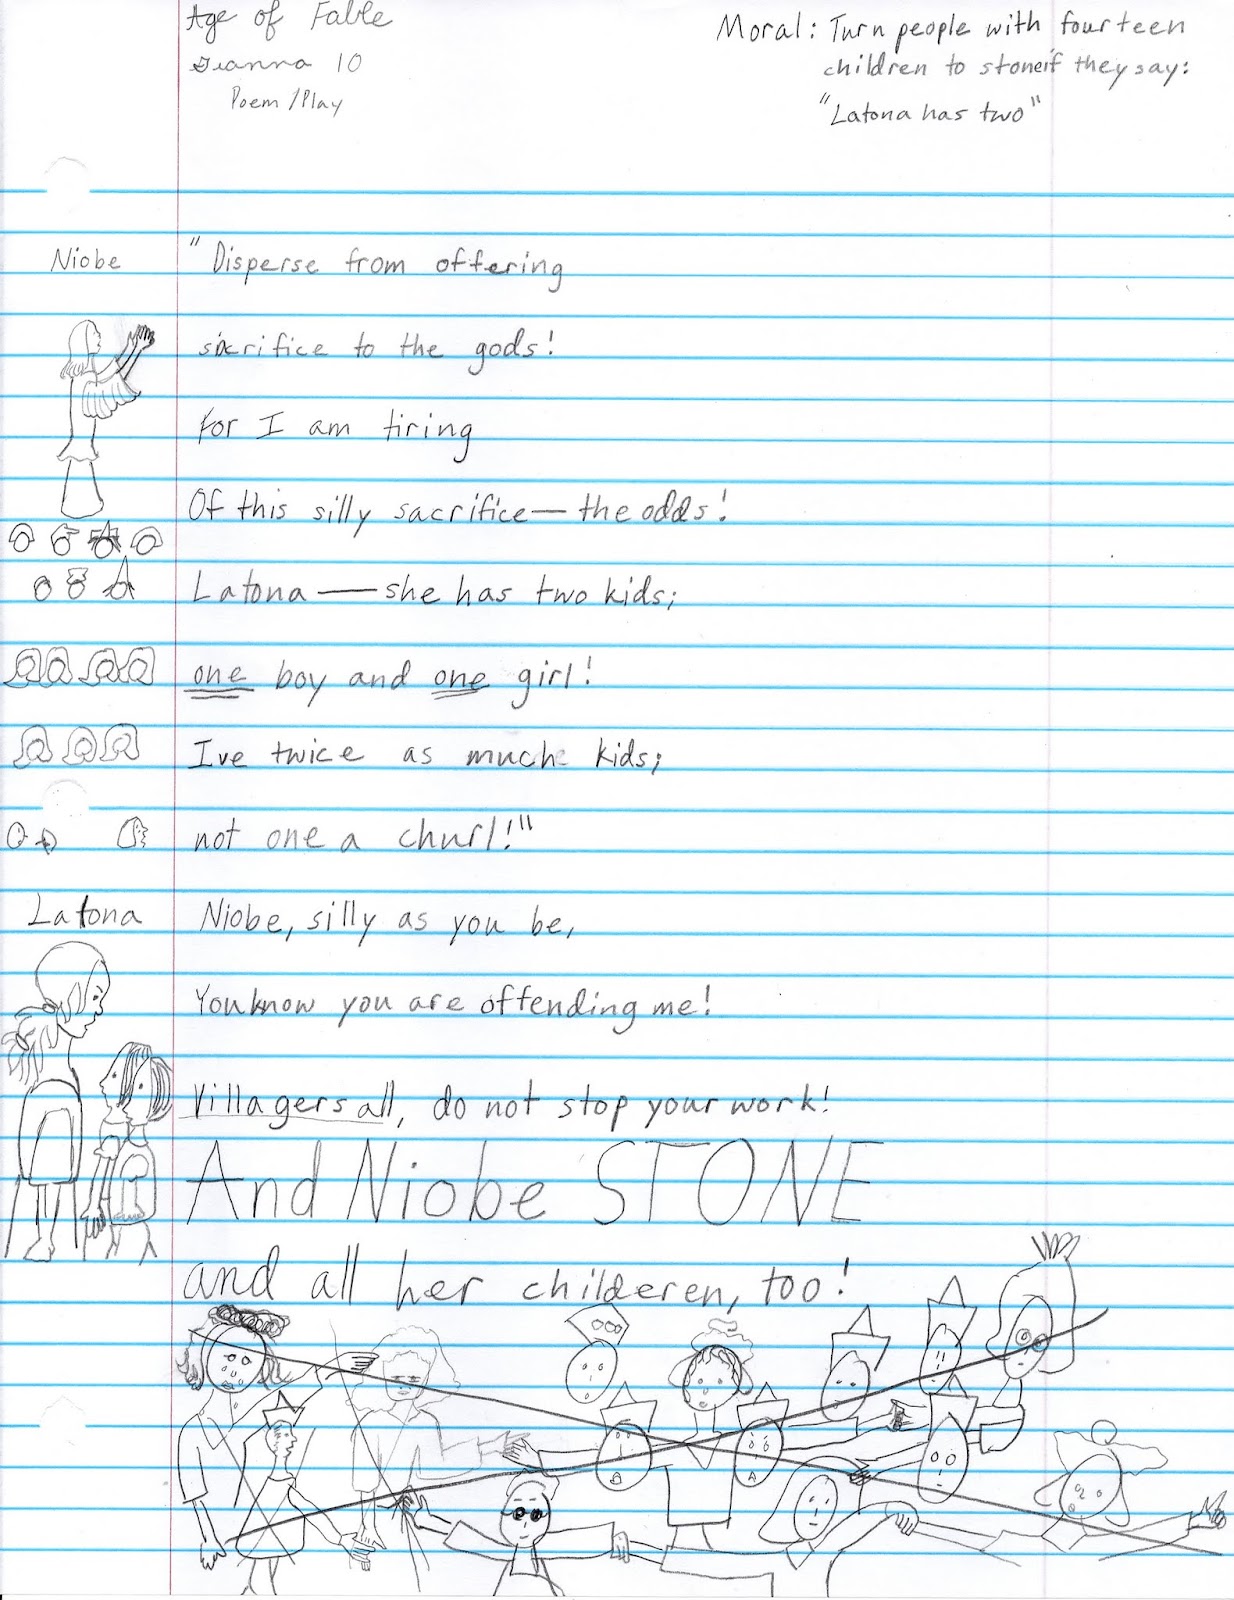 Age of Fable
Gianna 10
Poem/Play
Moral: Turn people with fourteen
children to stone if they say:
"Latona has two"
Niobe
"Disperse from offering
sacrifice to the gods!
For I am tiring
Of this silly sacrifice—the odds!
Latona—she has two kids;
one boy and one girl!
Ive twice as much kids;
not one a churl!"
Latona
Niobe, silly as you be,
You know you are offending me!
Villagers all, do not stop your work!
And Niobe STONE
and all her childeren, too!